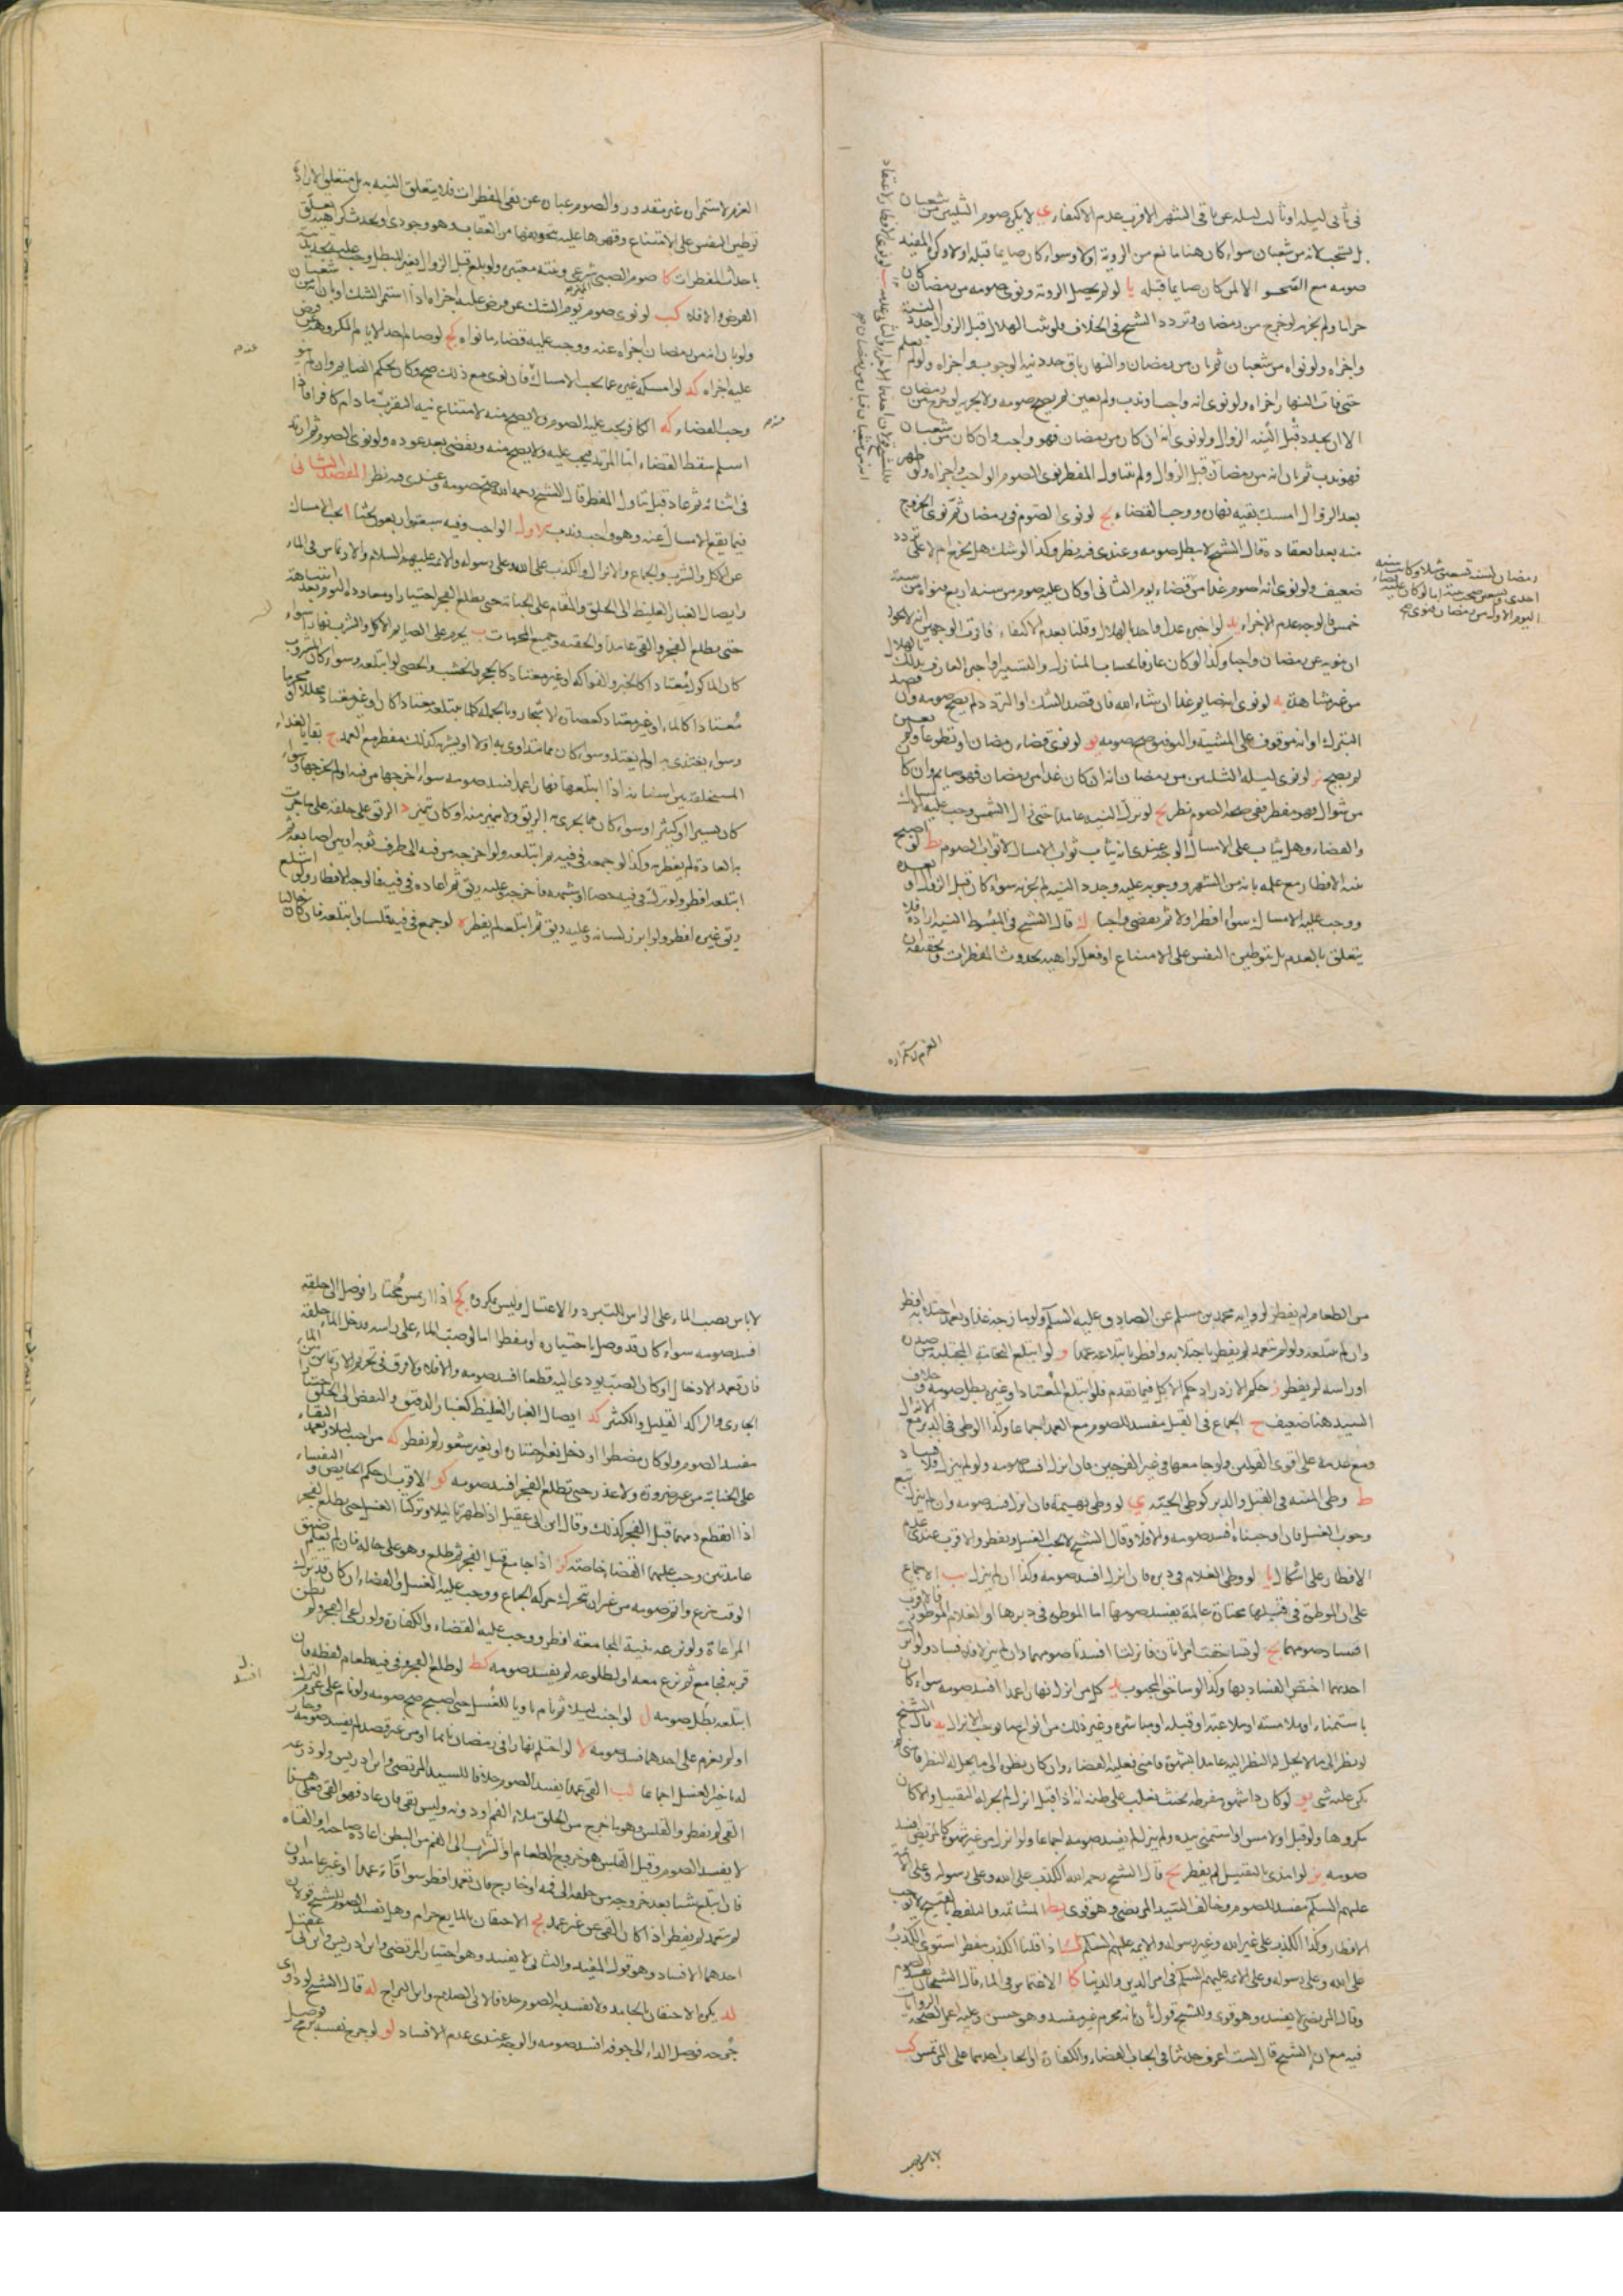 في ثاني ليله او ثالث ليله عن باقي الشهر الاقرب عدم الاكتفاء ي لا يكره صوم الثلثين من شعبان
بل يستحب لانه من شعبان سواء كان هنا مانع من الرؤية او لا وسواء كان صايما قبله او لا وكره المفيد
صومه مع الصحو الا لمن كان صايما قبله يا لو لم يحصل الروية ونوى صومه من رمضان كان
حراما ولم يجزه لو خرج من رمضان وتردد الشيخ في الخلاف فلو ثبت الهلال قبل الزوال جدد النية
واجزاه ولو نواه من شعبان ثم بان من رمضان والنهار باق جدد نية الوجوب واجزاه ولو لم يعلم
حتى فات النهار اجزاه ولو نوى انه واجب او ندب ولم يعين لم يصح صومه ولا يجزيه لو خرج من رمضان
الا ان يجدد قبل الزوال ولو نوى انه ان كان من رمضان فهو واجب وان كان من شعبان
فهو ندب ثم بان انه من رمضان قبل الزوال ولم يتناول المفطر نوى الصوم الواجب واجزاه ولو ظهر
بعد الزوال امسك بقيه نهاره ووجب القضاء لو نوى الصوم في رمضان ثم نوى الخروج
منه بعد انعقاده قال الشيخ لا يبطل صومه وعندى فيه نظر وكذا لو شك هل يخرج ام لا على تردد
ضعيف ولو نوى انه اصوم غدا من قضاء يوم الثاني او كان عليه صوم من سنه اربع فنواه من سنة
خمس فالوجه عدم الاجزاء يد لو اخبره عدل واحد بالهلال وقلنا بعدم الاكتفاء فاقرب الوجهين انه لا يجوز
ان ينويه عن رمضان واجبا وكذا لو كان عارفا بحساب المنازل والتسيير او اخبره العارف بذلك
من غير مشاهدة يه لو نوى انه صايم غدا ان شاء الله فان قصد الشك او التردد لم يصح صومه وان قصد
التبرك او انه موقوف على المشيه والتوفيق صح صومه يو لو نوى قضاء رمضان او تطوعا ولم يعين
لم يصح يز لو نوى ليله الثلثين من رمضان انه ان كان غدا من رمضان فهو صايم وان كان
من شوال فهو مفطر ففي صحه الصوم نظر يح لو ترك النيه عامدا حتى زال الشمس وجب عليه الامساك
والقضاء وهل يثاب على الامساك الوجه عندى انه يثاب ثواب الامساك لا ثواب الصوم يط لو اصبح
بنيه الافطار مع علمه بانه من الشهر ووجوبه عليه وجدد النية لم يجزه سواء كان قبل الزوال او بعده
ووجب عليه الامساك سواء افطر اولا ثم يقضى واجبا ك قال الشيخ في المبسوط النيه ارادة فلا
يتعلق بالعدم بل بتوطين النفس على الامتناع او فعل كراهيه لحدوث المفطرات وتحقيقه ان
العزم لاستمراره
العزم لاستمراره غير مقدور والصوم عباره عن نفي المفطرات فلا يتعلق النيه به بل متعلق الارادة
توطين النفس على الامتناع وقهرها عليه بتخويفها من العقاب وهو وجودى او يحدث كراهيه تتعلق
باحداث المفطرات كا صوم الصبي شرعي ونيته معتبرة ولو بلغ قبل الزوال بغير المبطل وجب عليه تجديد نية
الفرض والا فلا كب لو نوى صوم يوم الشك عن فرض عليه اجزاه اذا استمر الشك او بان من شعبان
ولو بان انه من رمضان اجزاه عنه ووجب عليه قضاء ما نواه كج لو صام احد الايام المكروهة عن فرض
عليه اجزاه كد لو امسك غير عما يجب الامساك فان نوى مع ذلك صح وكان بحكم الصايم وان لم ينو
وجب القضاء كه الكافر يجب عليه الصوم ولا يصح منه لامتناع نيه التقرب ما دام كافرا فاذا
اسلم سقط القضاء اما المرتد فيجب عليه ولا يصح منه ويقضى بعد عوده ولو نوى الصوم ثم ارتد
في اثنائه ثم عاد قبل تناول المفطر قال الشيخ رحمه الله صح صومه وعندى فيه نظر المقصد الثاني
فيما يقع الامساك عنه وهو واجب وندب الاول الواجب وفيه سبعة واربعون بحثا ا يجب الامساك
عن الاكل والشرب والجماع والانزال والكذب على الله وعلى رسوله والايمة عليهم السلام والارتماس في الماء
وايصال الغبار الغليظ الى الحلق والمقام على الجنابة حتى يطلع الفجر اختيارا ومعاودة النوم بعد انتباهة
حتى يطلع الفجر والقي عامدا والحقنه وجميع المحرمات ب يحرم على الصايم الاكل والشرب نهارا سواء
كان الماكول معتادا كالخبز والفواكه او غير معتاد كالحجر والخشب والحصى لو ابتلعه وسواء كان المشروب
معتادا كالماء او غير معتاد كعصارة الاشجار وبالجمله كلما يبتلعه معتادا كان او غير معتاد محللا او محرما
وسواء يغتذى به او لم يغتذ وسواء كان مما يتداوى به او لا او يشربه كذلك مفطر مع العمد ج بقايا الغذاء
المستخلفة بين اسنانه اذا ابتلعها نهارا عمدا فسد صومه سواء اخرجها من فيه او لم يخرجها وسواء
كان يسيرا او كثيرا وسواء كان مما يجرى به الريق ولا يتميز منه او كان يتميز د الريق على حلقه على ما جرت
به العادة لم يفطره وكذا لو جمعه في فيه ثم ابتلعه ولو اخرجه من فيه الى طرف ثوبه او بين اصابعه ثم
ابتلعه افطر ولو ترك في فيه حصاة او شبهه فاخرجه وعليه ريق ثم اعاده في فيه فالوجه الافطار ولو ابتلع
ريق غيره افطر ولو ابرز لسانه وعليه ريق ثم ابتلعه لم يفطر ه لو جمع في فيه قلسا وابتلعه فان كان خاليا
من الطعام لم يفطر لروايه محمد بن مسلم عن الصادق عليه السلم ولو مازجه غذا وتعمد اجتلابه افطر
وان لم يبتلعه ولو لم يتعمد لم يفطر باجتلابه وافطر بابتلاعه عمدا و لو ابتلع النخامة المجتلبة من صدره
او راسه لم يفطر ز حكم الازدراد حكم الاكل فيما تقدم فلو ابتلع المعتاد او غيره بطل صومه وخلاف
السيد هنا ضعيف ح الجماع في القبل مفسد للصوم مع العمد اجماعا وكذا الوطي في الدبر مع الانزال
ومع عدمه على اقوى القولين ولو جامعها في غير الفرجين فان انزل افسد صومه ولو لم ينزل فلا فساد
ط وطى الميته في القبل والدبر كوطى الحيه ي لو وطى بهيمة فان انزل فسد صومه وان لم ينزل تبع
وجوب الغسل فان اوجبناه افسد صومه والا فلا وقال الشيخ لا يجب الغسل ويفطر والاقرب عندى عدم
الافطار على اشكال يا لو وطى الغلام في دبره فان انزل افسد صومه وكذا ان لم ينزل يب الاجماع
على ان الموطؤة في قبلها مختارة عالمة يفسد صومها اما الموطوة في دبرها او الغلام الموطؤ فالاقرب
افساد صومهما يج لو تساحقت امراتان فانزلتا افسدتا صومهما وان لم ينزلا فلا فساد ولو انزلت
احديهما اختص الفساد بها وكذا لو ساحق المجبوب يد كل من انزل نهارا عامدا افسد صومه سواء كان
باستمناء او ملامسة او ملاعبة او قبله او مباشرة وغير ذلك من انواع ما يوجب الانزال يه قال الشيخ
لو نظر الى ما لا يحل له النظر اليه عامدا بشهوة فامنى فعليه القضاء وان كان نظره الى ما يحل له النظر فامنى لم
يكن عليه شئ يو لو كان ذا شهوة مفرطه بحيث يغلب على ظنه انه اذا قبل انزل لم يجز له التقبيل والا كان
مكروها ولو قبل او لامس او استمنى بيده ولم ينزل لم يفسد صومه اجماعا ولو انزل من غير شهوة كالمريض لم يفسد
صومه يز لو امذى بالتقبيل لم يفطر يح قال الشيخ رحمه الله الكذب على الله وعلى رسوله وعلى الايمة
عليهم السلم مفسد للصوم وخالف السيد المرتضى وهو قوى يط المشاتمة والتلفظ بالقبيح لا يوجب
الافطار وكذا الكذب على غير الله وغير رسوله والايمه عليهم السلم ك اذا قلنا الكذب يفطر استوى الكذب
على الله وعلى رسوله وعلى الايمه عليهم السلم في امر الدين والدنيا كا الانغماس في الماء قال الشيخان يفسد الصوم
وقال المرتضى لا يفسده وهو قوى وللشيخ قول ثان بانه محرم غير مفسد وهو حسن وعليه اعمل لصحة الروايات
فيه مع ان الشيخ قال لست اعرف حديثا في ايجاب القضاء والكفارة او ايجاب احدهما على المرتمس كب
لا باس بصب
لا باس بصب الماء على الراس للتبرد والاغتسال وليس بمكروه كج اذا ارتمس مختارا فوصل الى حلقه
افسد صومه سواء كان قد وصل باختياره او مضطرا اما لو صب الماء على راسه فدخل الماء حلقه
فان تعمد الادخال او كان الصب يودى اليه قطعا افسد صومه والا فلا ولا فرق في تحريم الارتماس بين الماء
الجارى والراكد القليل والكثير كد ايصال الغبار الغليظ كغبار الدقيق والنفض الى الحلق اختيارا
مفسد للصوم ولو كان مضطرا او دخل بغير اختياره او بغير شعور لم يفطر كه من اجنب ليلا وتعمد البقاء
على الجنابة من غير ضرورة ولا عذر حتى تطلع الفجر افسد صومه كو الاقرب ان حكم الحايض والنفساء
اذا انقطع دمهما قبل الفجر كذلك وقال ابن ابي عقيل اذا طهرتا ليلا وتركتا الغسل حتى يطلع الفجر
عامدتين وجب عليهما القضاء خاصة كز اذا جامع قبل الفجر ثم طلع وهو على حاله فان لم يعلم ضيق
الوقت نزع واتم صومه من غير ان يتحرك حركه الجماع ووجب عليه الغسل والقضاء ان كان قد ترك
المراعاة ولو نزعه بنية المجامعة افطر ووجب عليه القضاء والكفارة ولو راعى الفجر ولم يظن
قربه فجامع ثم نزع مع اول طلوعه لم يفسد صومه كط لو طلع الفجر وفي فيه طعام لفظه فان
ابتلعه بطل صومه ل لو اجنب ليلا ثم نام ناويا للغسل حتى اصبح صح صومه ولو نام على عزم الترك
او لم يعزم على احدهما فسد صومه لا لو احتلم نهارا في رمضان نايما او من غير قصد لم يفسد صومه وجاز
له تاخير الغسل اجماعا لب القي عمدا يفسد الصوم خلافا للسيد المرتضى وابن ادريس ولو ذرعه
القي لم يفطر والقلس وهو ما خرج من الحلق ملء الفم او دونه وليس بقى فان عاد فهو القى فعلى هذا
لا يفسد الصوم وقيل القلس هو خروج الطعام او الشراب الى الفم من البطن اعاده صاحبه او القاه
فان ابتلع شيئا بعد خروجه من حلقه الى فمه او خارج فان تعمد افطر سواء قاء عمدا او غير عامد وان
لم يتعمد لم يفطر اذا كان القي عن غير عمد لج الاحتقان بالمايع حرام وهل يفسد الصوم للشيخ قولان
احدهما الافساد وهو قول المفيد والثاني لا يفسد وهو اختيار المرتضى وابن ادريس وابن ابي عقيل
لد يكره الاحتقان بالجامد ولا يفسد به الصوم خلافا لابي الصلاح وابن البراج له قال الشيخ لو داوى
جرحه فوصل الدواء الى جوفه افسد صومه والوجه عندى عدم الافساد لو لو جرح نفسه برمح فوصل